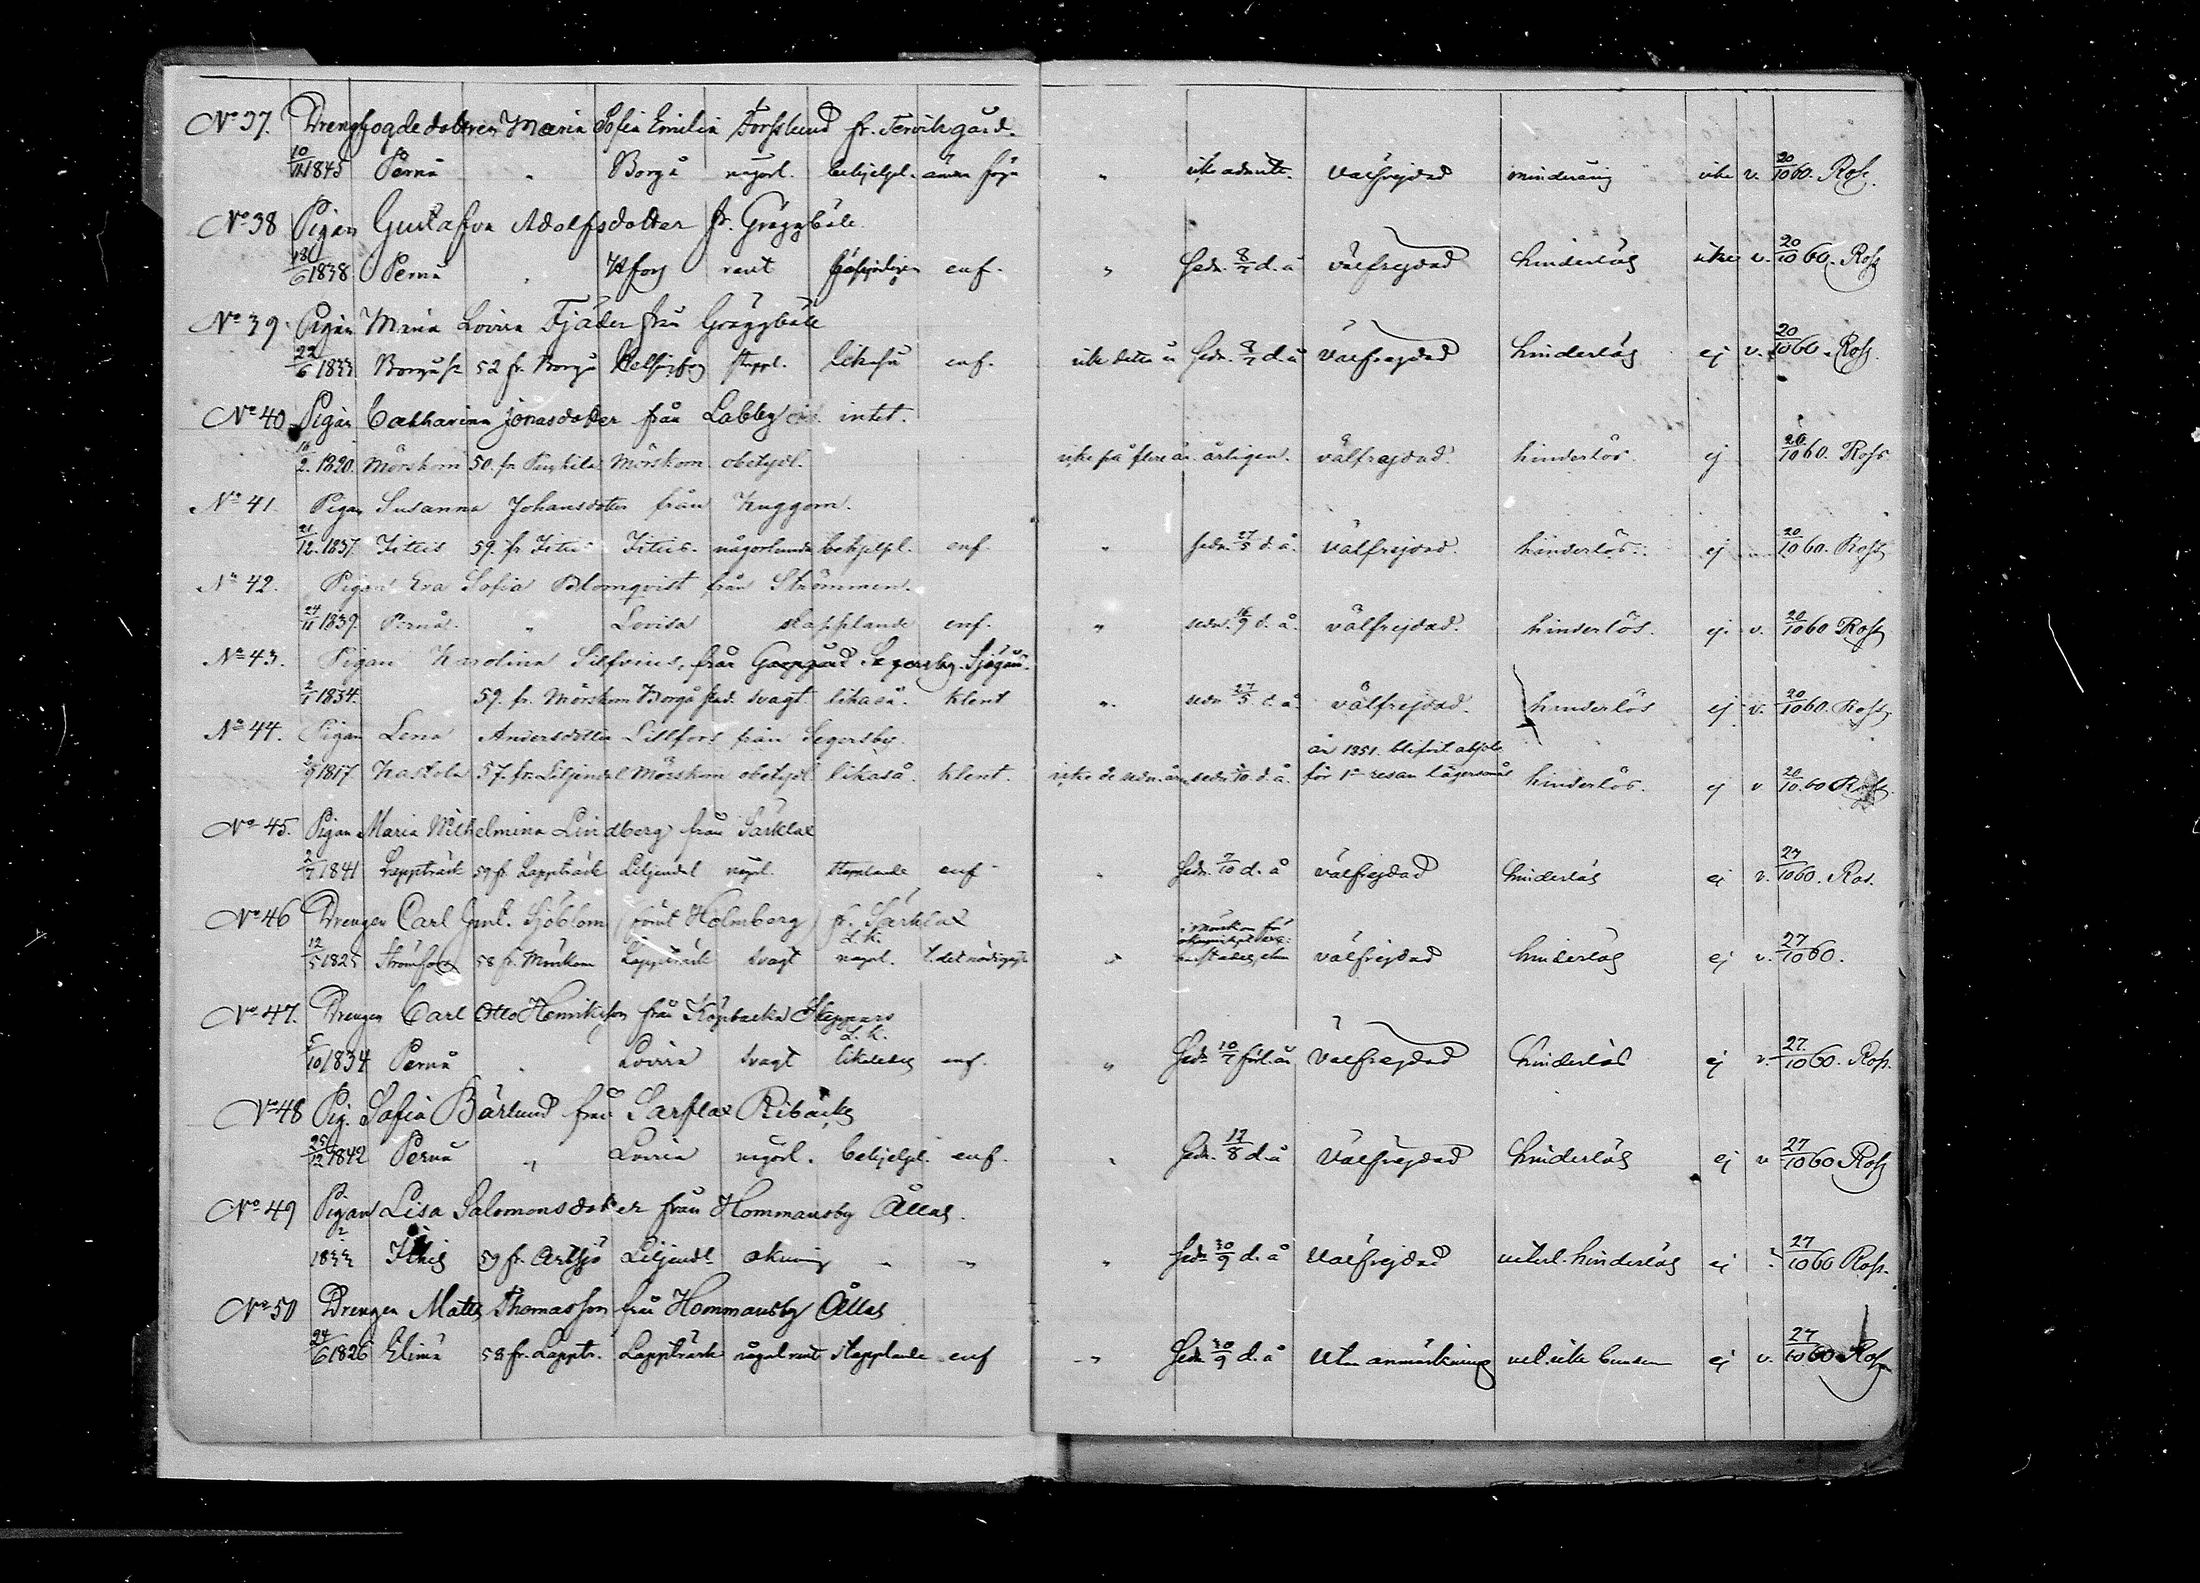 No 37. Drengfogdedottren Maria Sofia Emilia Forsslund fr. Tervikgård.
10/11 1845 Pernå " Borgå någorl. behjelpl. " icke admitt. välfrejdad minderårig icke v. 20/10 60. Ross.
No 38 Pigan Gustafva Adolfsdotter fr. Gräggböle
18/6 1838 Pernå " Hfors rent enf. " sedn. 8/7 d. å välfrejdad hinderlös icke v. 20/10 60. Ross
No 39. Pigan Maria Lovisa Fjäder från Gräggböle
22/6 1833 Borgå s. 52 fr. Borgå Helsingfors stappl. likaså enf. icke detta å sedn. 8/7 d. å välfrejdad hinderlös ej v. 20/10 60. Ross.
No 40 Pigan Catharina Jonasdotter från Labby intet.
/2. 1820. Mörskom 50. fr. Mörskom obetydl. icke på flere år årligen. välfrejdad. hinderlös. ej 20/10 60. Ross
No 41. Pigan Susanna Johansdotter från Kuggom.
21/12. 1837. Jitis 59. fr Jitis Jitis. någorlunda behjelpl. enf. " sedn. 27/5 d. å. välfrejdad. hinderlös. ej 20/10 60. Ross
No 42. Pigan Eva Sofia Blomqvist från Strömmen.
24/11 1839. Pernå. " Lovisa stapplande enf. " sedn. 16/9 d. å. välfrejdad. hinderlös. ej. v. 20/10 60 Ross
No 43. Pigan Karolina Silfvius, från Garpgård Segersby Sjögård.
2/1 1834. 59. fr. Mörskom Borgå stad. svagt likaså. klent " sedn 27/5 d. å välfrejdad. hinderlös ej v. 20/10 60. Ross
No 44. Pigan Lena Andersdotter Lillfors från Segersby.
/9 1817 Kastola 57. fr. Liljendal Mörskom obetydl likaså. klent. icke de sedn. åren sedn. /10 d. å. år 1851. blifvit absolv. för 1a resan lägersmål hinderlös. ej v 20/10. 60 Ross.
No 45. Pigan Maria Wilhelmina Lindberg från Särklax
2/7 1841 Lappträsk 59 fr. Lappträsk Liljendal någl. stapplande enf " sedn. 7/10 d. å välfrejdad hinderlös ej v. 27/10 60. Ros.
No 46 Drengen Carl Gust. Sjöblom, (förut Holmberg) fr. Särklax
12/5 1825 Strömfors 58 fr. Mörskom Lappträsk svagt L. K. någl. t. det nödigaste " i Mörskom för välfrejdad hinderlös ej v. 27/10 60.
No 47. Drengen Carl Otto Henriksson från Köpbacka Skeppars
5/10 1834 Pernå " Lovisa svagt L. K. likaledes enf. " sedn 10/7 förl. år välfrejdad hinderlös ej v. 27/10 60. Ross.
No 48 Pig. Sofia Bärlund från Sarflax Ribacka
25/12 1842 Pernå " Lovisa någorl. behjelpl. enf. " sedn. 12/8 d. å välfrejdad hinderlös ej v 27/10 60 Ross
No 49 Pigan Lisa Salomonsdotter från Hommansby Ållas.
1833 Jthis 59 fr. Artsjö Liljendl okunnig " " " sedn 30/9 d. å välfrejdad veterl. hinderlös ej 27/10 60 Ross.
No 50 Drengen Matts Thomasson från Hommansby Ållas
24/6 1826 Elimä 58 fr. Lapptr. Lappträsk någol. rent stapplande enf " sedn 30/9 d. å utan anmärkning vet. icke bunden ej v. 27/10 60 Ross